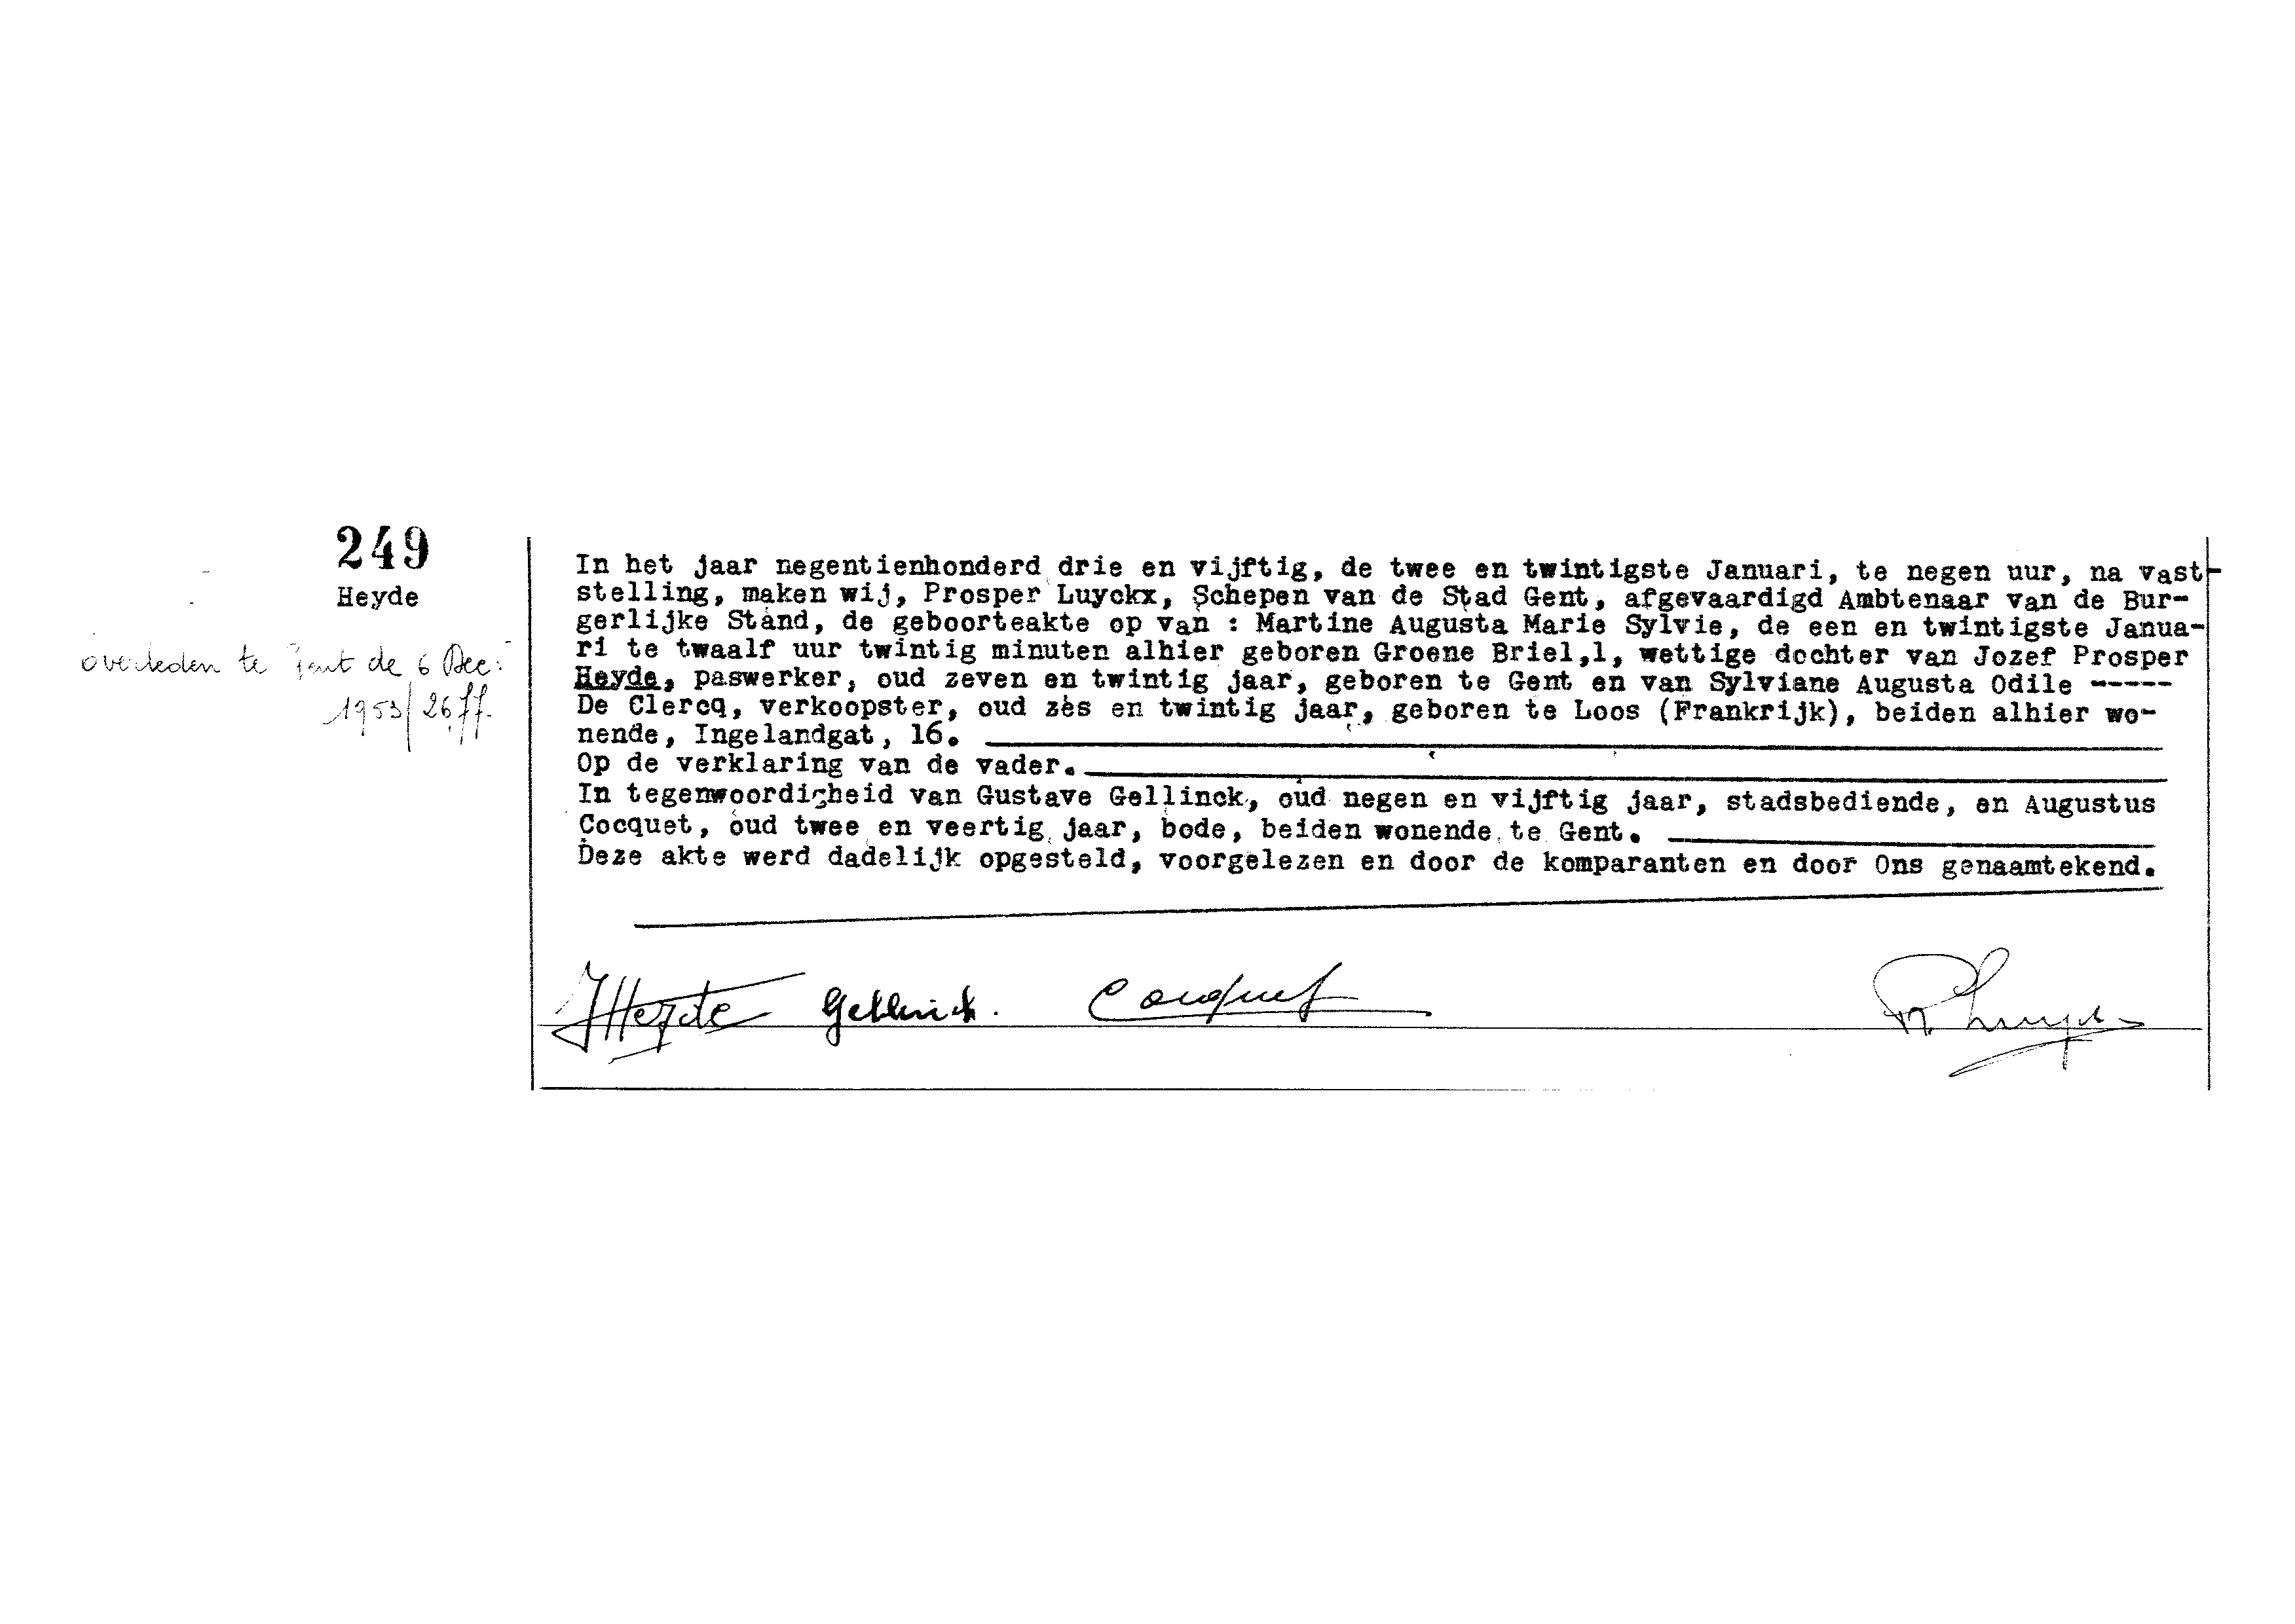 249
Heyde
overleden te Gent de 6 Dec.
1953/26
In het jaar negentienhonderd drie en vijftig, de twee en twintigste Januari, te negen uur, na vast-
stelling, maken wij, Prosper Luyckx, Schepen van de Stad Gent, afgevaardigd Ambtenaar van de Bur-
gerlijke Stand, de geboorteakte op van : Martine Augusta Marie Sylvie, de een en twintigste Janua-
ri te twaalf uur twintig minuten alhier geboren Groene Briel,1, wettige dochter van Jozef Prosper
Heyde, paswerker, oud zeven en twintig jaar, geboren te Gent en van Sylviane Augusta Odile -----
De Clercq, verkoopster, oud zes en twintig jaar, geboren te Loos (Frankrijk), beiden alhier wo-
nende, Ingelandgat, 16.
Op de verklaring van de vader.
In tegenwoordigheid van Gustave Gellinck, oud negen en vijftig jaar, stadsbediende, en Augustus
Cocquet, oud twee en veertig jaar, bode, beiden wonende te Gent.
Deze akte werd dadelijk opgesteld, voorgelezen en door de komparanten en door Ons genaamtekend.
JHeyde Gellinck. Cocquet Pr. Luyckx